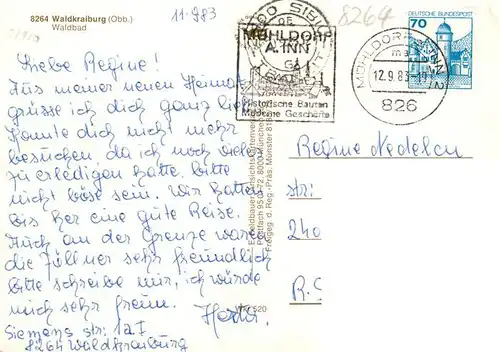 8264 Waldkraiburg (Obb.)
Waldbad
11.983
8264
Liebe Regine!
Aus meiner neuen Heimat
grüsse ich dich ganz
Konnte dich nicht mehr
besuchen, da ich noch vieles
zu erledigen hatte, bitte
nicht böse sein. Wir hatten
bis her eine gute Reise.
Auch an der Grenze waren
die Zöllner sehr freundlich
bitte schreibe mir, ich würde
mich sehr freun.
Herta.
Siemens str: 12
8264 Waldkraiburg
MÜHLDORF
A. INN
Historische Bauten
Moderne Geschäfte
MÜHLDORF A. INN 2
12.9.83
826
70
DEUTSCHE BUNDESPOST
Regine Nedelcu
str:
240
R.S
520